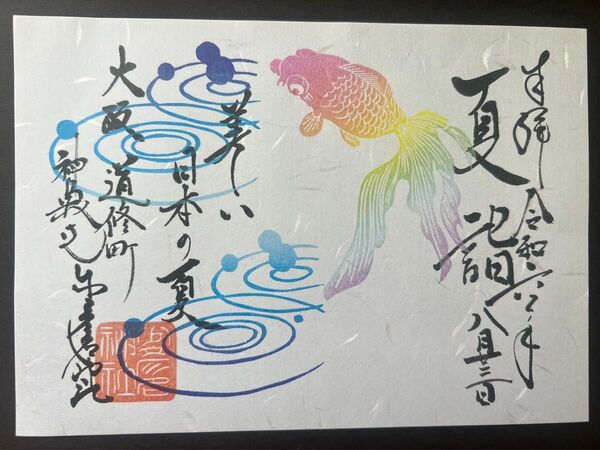 奉拝 令和六年
夏詣 八月
美しい
日本の夏
大阪 道修町
神農さん 少彦名神社